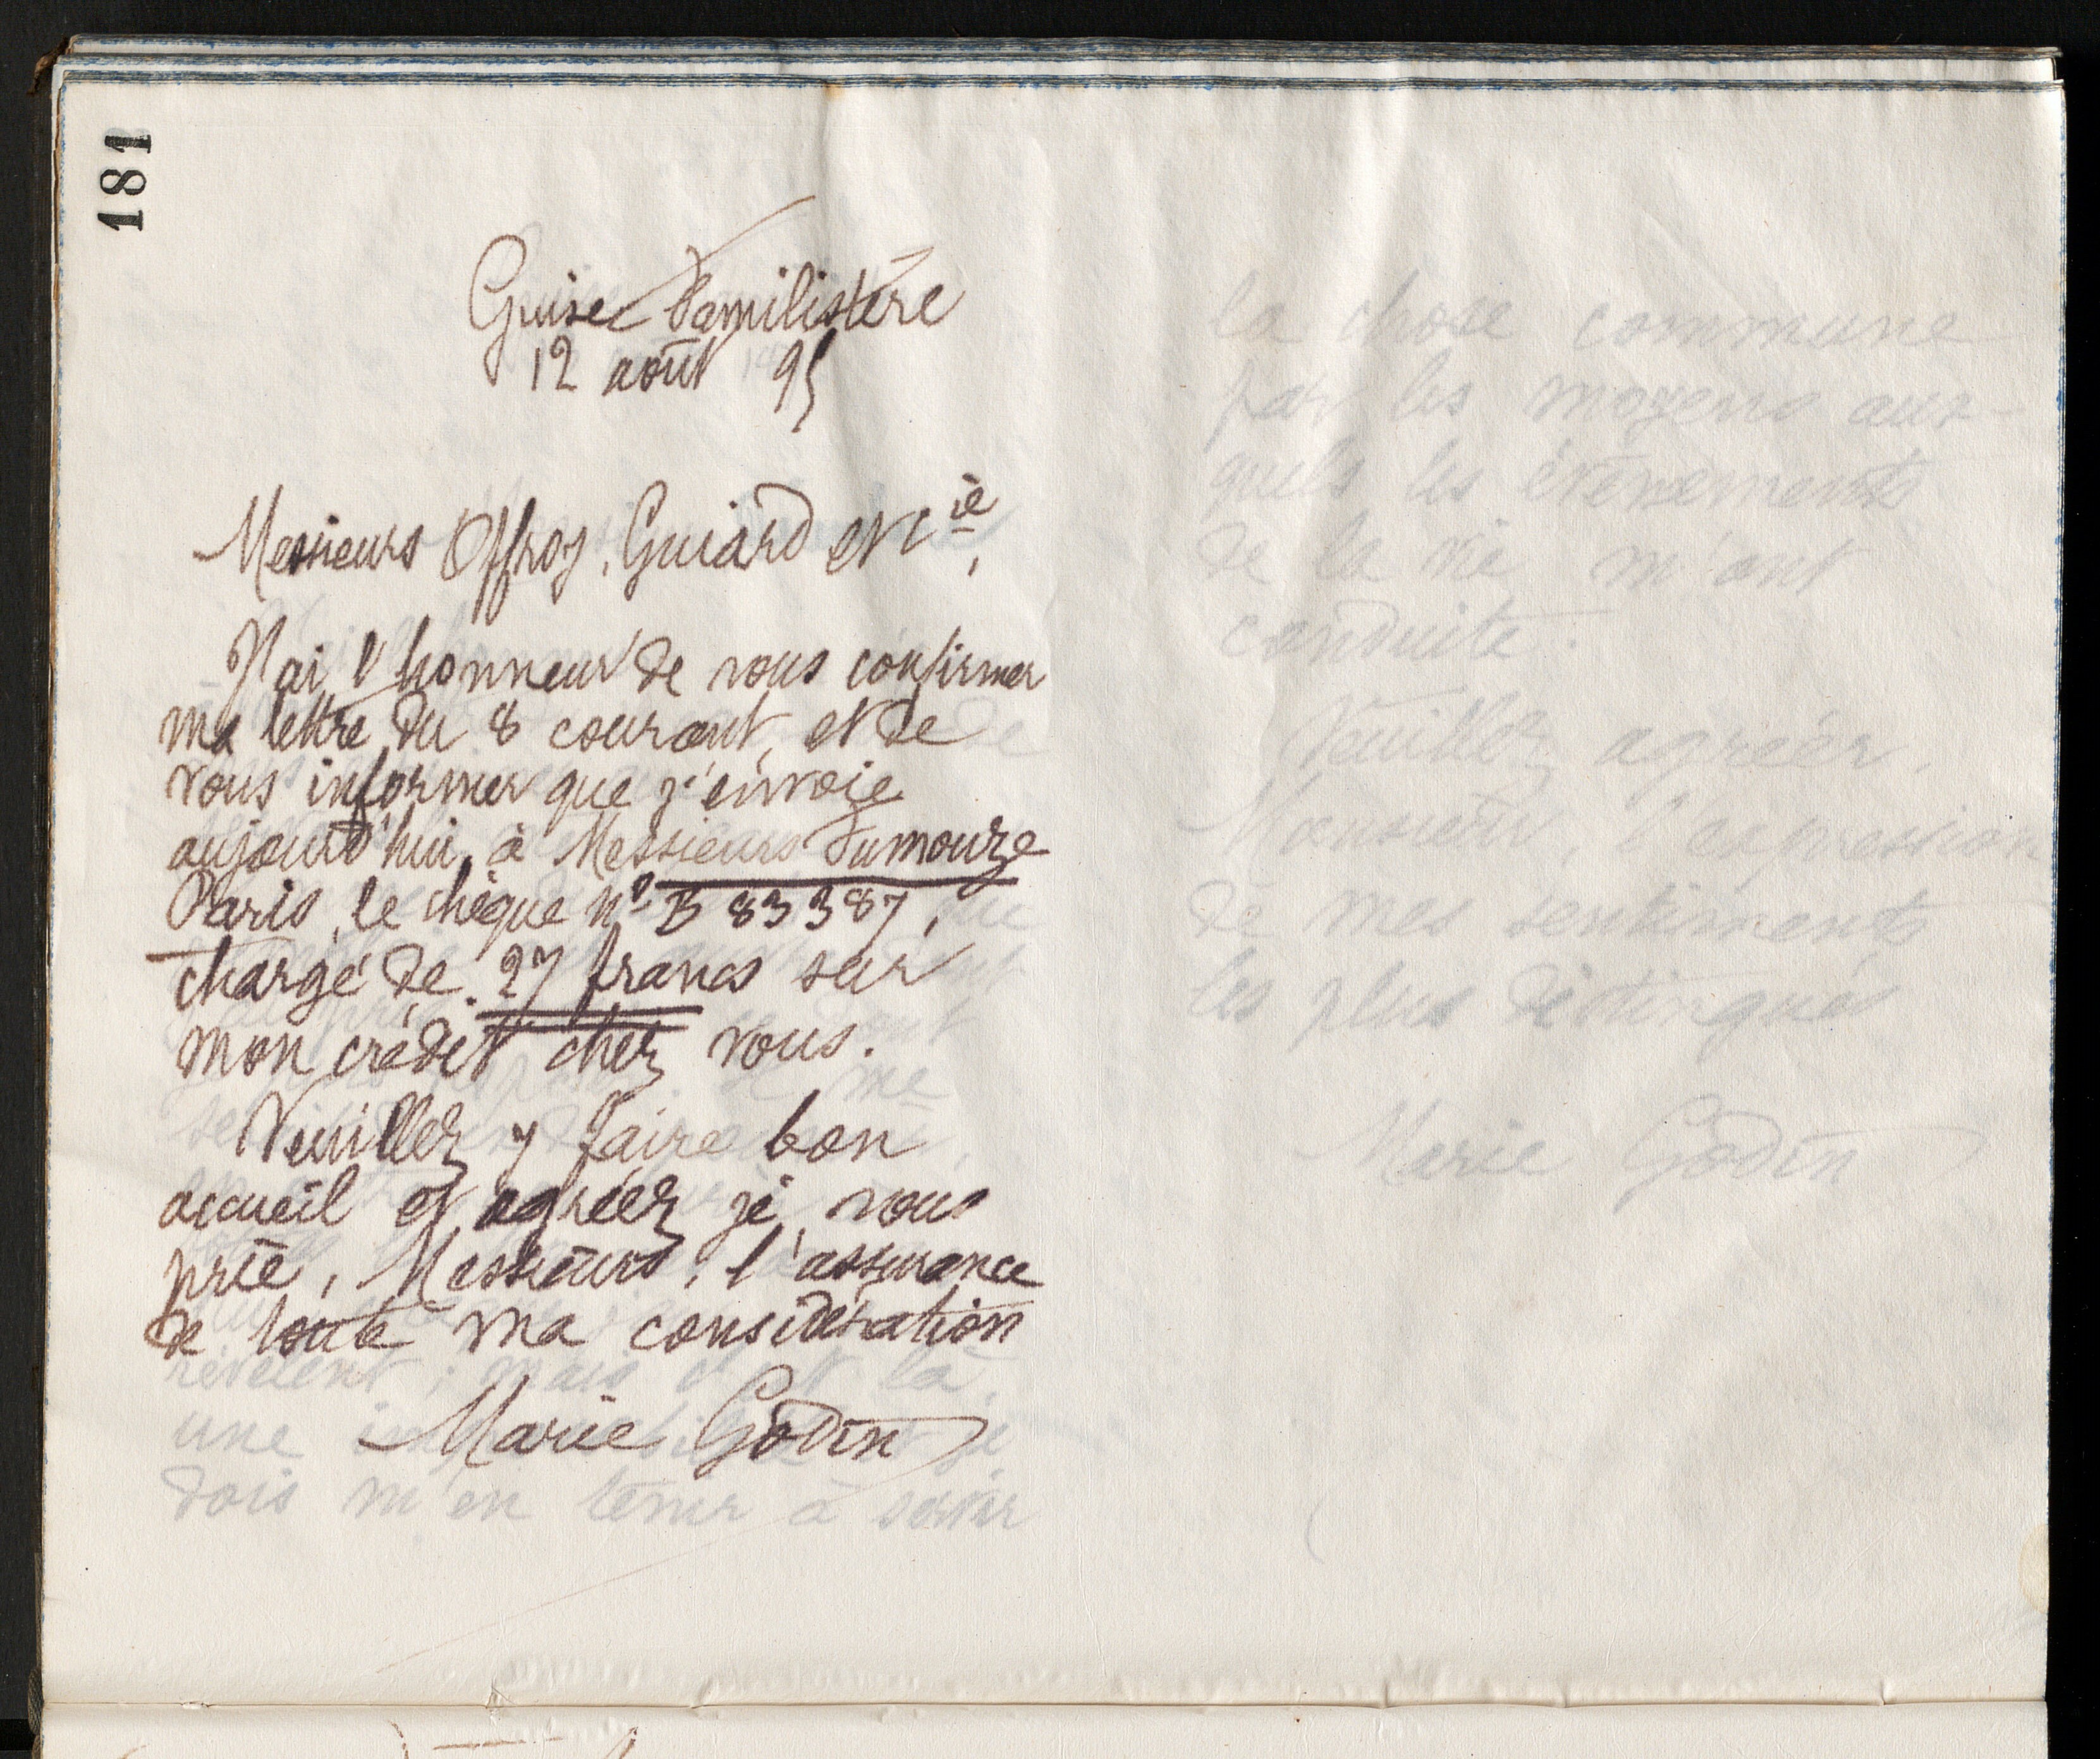 181
Guise Familistère
12 août 95
Messieurs Offroy, Guiard et Cie,
J'ai l'honneur de vous confirmer
ma lettre du 8 courant, et de
vous informer que j'envoie
aujourd'hui à Messieurs Fumouze
Paris, le chèque no B 83387,
chargé de 27 francs sur
mon crédit chez vous.
Veuillez y faire bon
accueil et agréez je vous
prie, Messieurs, l'assurance
de toute ma considération
Marie Godin
révèlent ; mais c'est là
une
dois m'en tenir à servir
la chose commune
par les moyens aux-
quels les événements
de la vie m'ont
conduite.
Veuillez agréer,
Monsieur l'expression
de mes sentiments
les plus distingués
Marie Godin